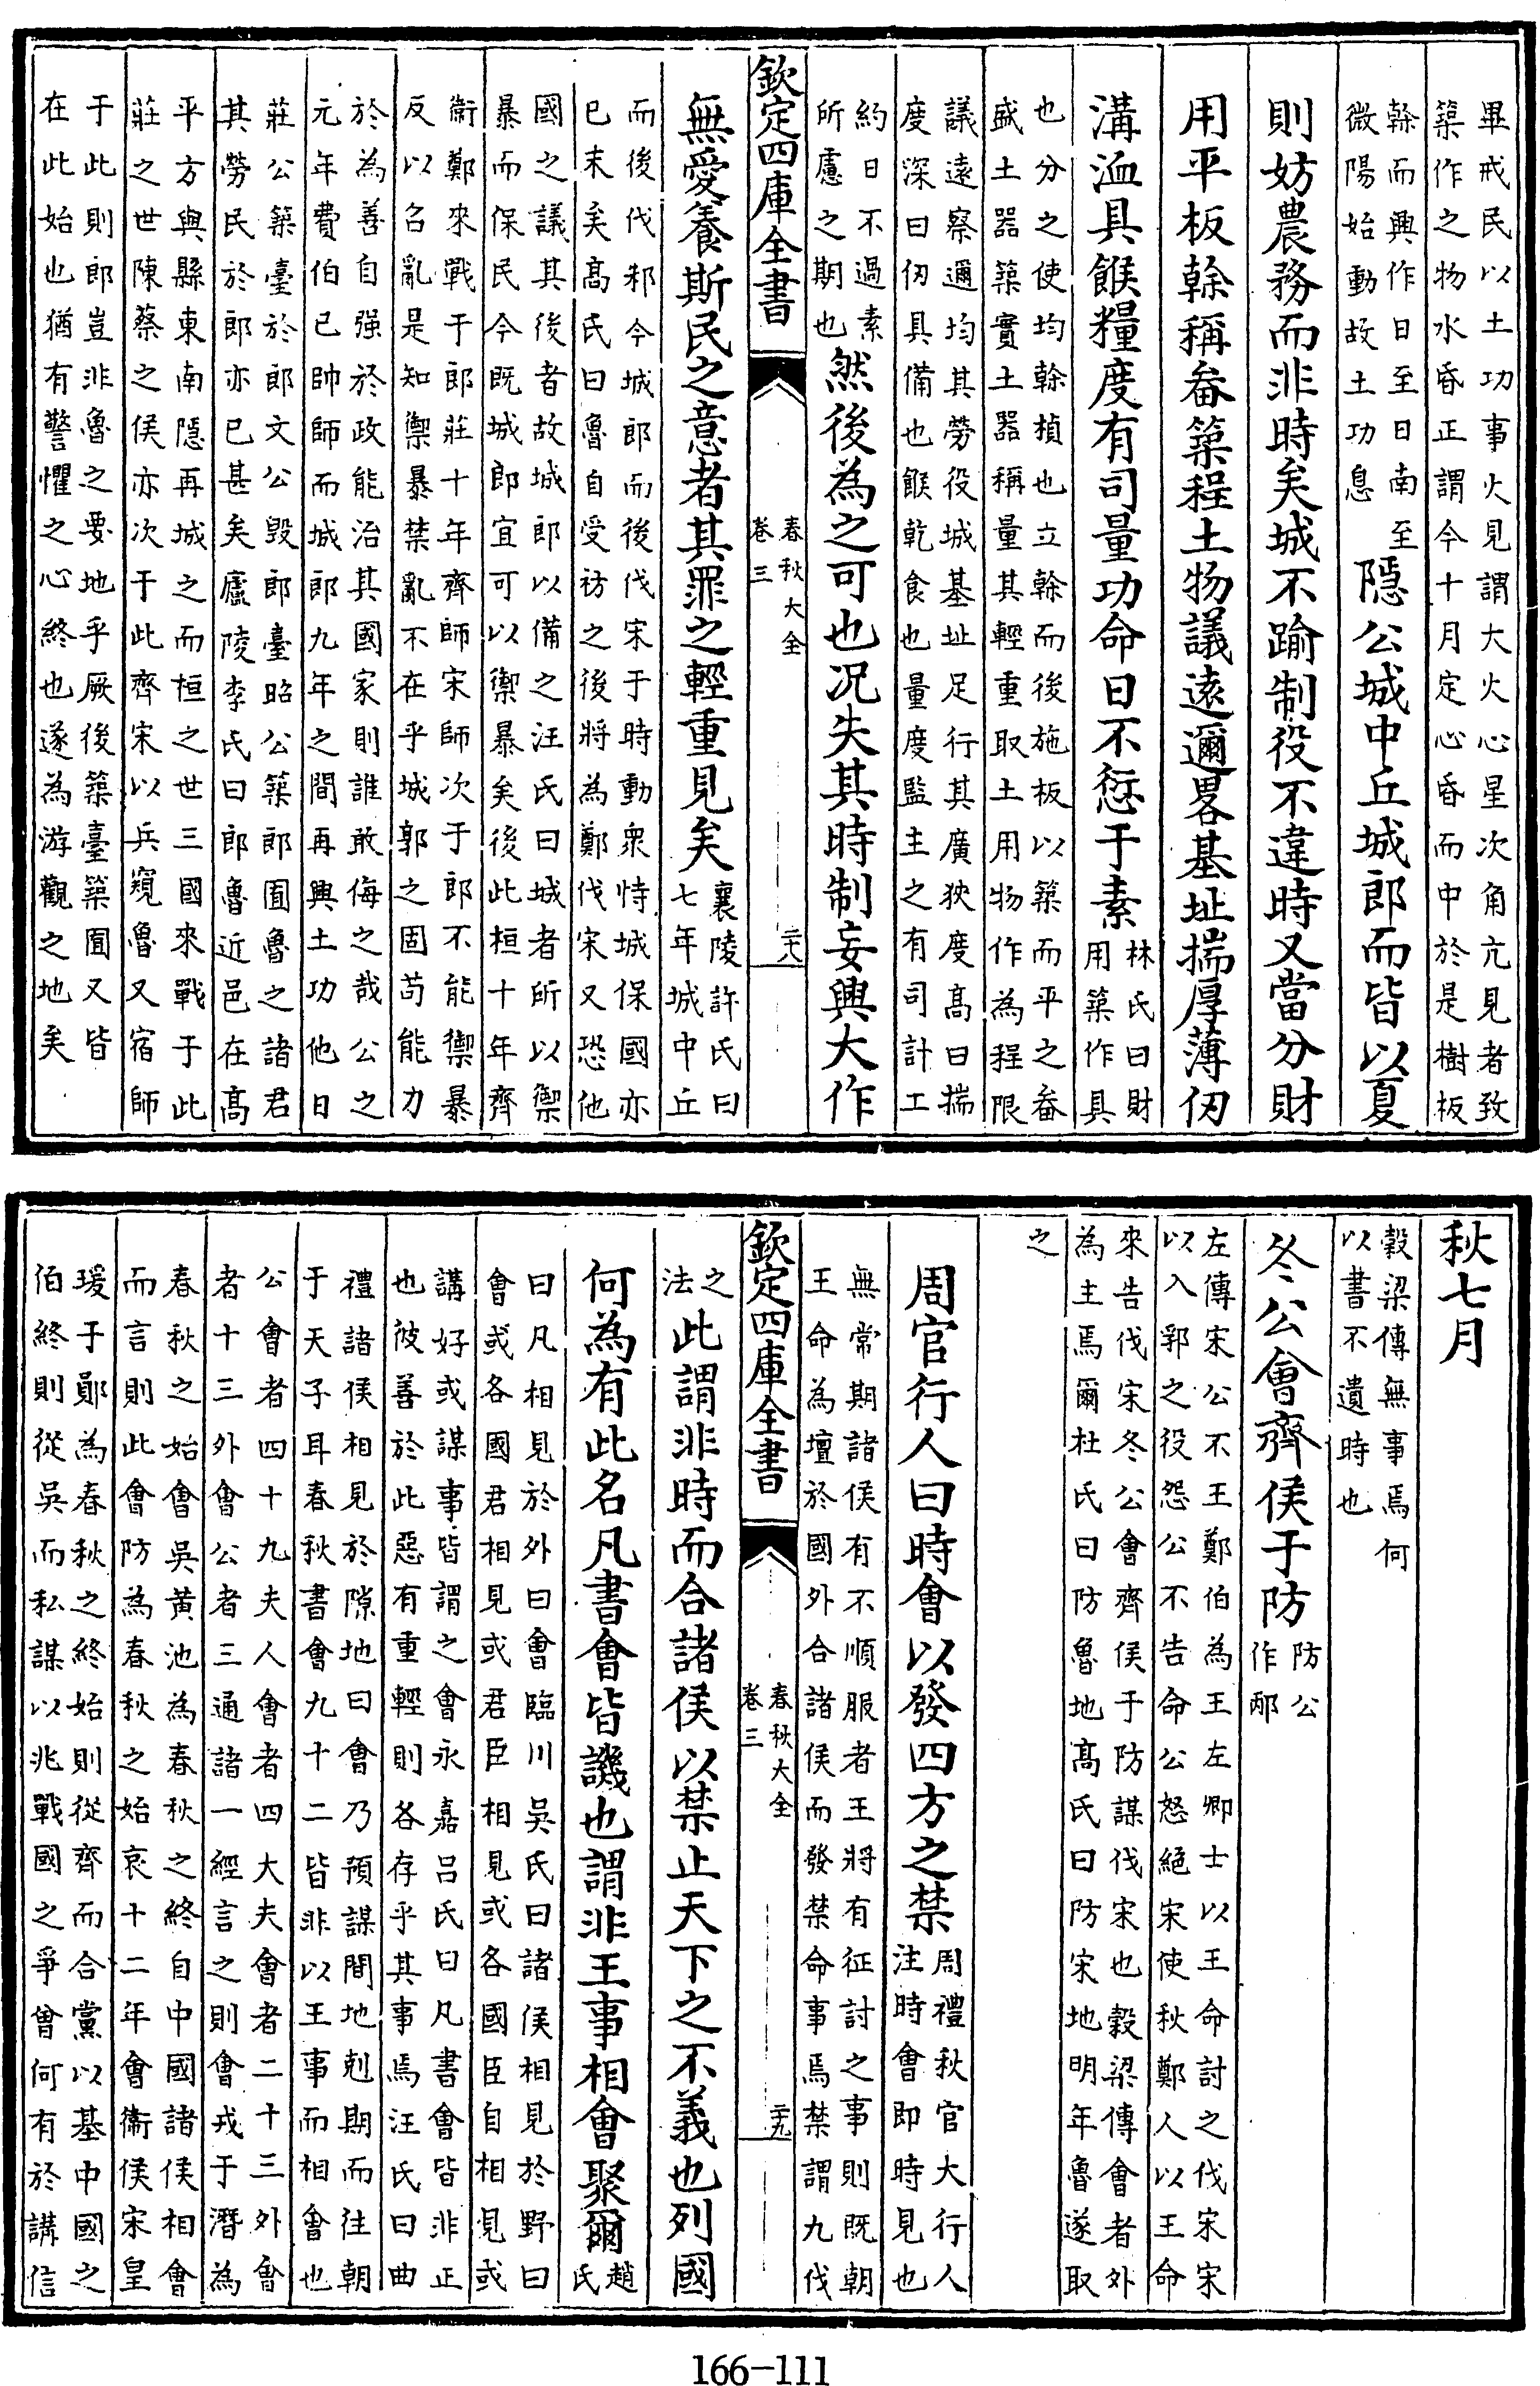 畢戒民以土功事火見謂大火心星次角亢見者致
築作之物水昏正謂今十月定心昏而中於是樹板
榦而興作日至日南至
微陽始動故土功息
隱公城中丘城郎而皆以夏
則妨農務而非時矣城不踰制役不違時又當分財
用平板榦稱畚築程土物議遠邇畧基址揣厚薄仞
溝洫具餱糧度有司量功命日不愆于素
林氏曰財
用築作具
也分之使均榦楨也立榦而後施板以築而平之畚
盛土器築實土器稱量其輕重取土用物作為程限
議遠察邇均其勞役城基址足行其廣狹度高曰揣
度深曰仞具備也餱乾食也量度監主之有司計工
約日不過素
所慮之期也
然後為之可也况失其時制妄興大作
欽定四庫全書
春秋大全
卷三
二十八
無愛養斯民之意者其罪之輕重見矣
襄陵許氏曰
七年城中丘
而後伐邾今城郎而後伐宋于時動衆恃城保國亦
已末矣高氏曰魯自受祊之後將為鄭伐宋又恐他
國之議其後者故城郎以備之汪氏曰城者所以禦
暴而保民今既城郎宜可以禦暴矣後此桓十年齊
衞鄭來戰于郎莊十年齊師宋師次于郎不能禦暴
反以召亂是知禦暴禁亂不在乎城郭之固苟能力
於為善自强於政能治其國家則誰敢侮之哉公之
元年費伯已帥師而城郎九年之間再興土功他日
莊公築臺於郎文公毀郎臺昭公築郎囿魯之諸君
其勞民於郎亦已甚矣廬陵李氏曰郎魯近邑在高
平方與縣東南隱再城之而桓之世三國來戰于此
莊之世陳蔡之侯亦次于此齊宋以兵窺魯又宿師
于此則郎豈非魯之要地乎厥後築臺築囿又皆
在此始也猶有警懼之心終也遂為游觀之地矣
秋七月
穀梁傳無事焉何
以書不遺時也
冬公會齊侯于防
防公
作邴
左傳宋公不王鄭伯為王左卿士以王命討之伐宋宋
以入郛之役怨公不告命公怒絕宋使秋鄭人以王命
來告伐宋冬公會齊侯于防謀伐宋也穀梁傳會者外
為主焉爾杜氏曰防魯地高氏曰防宋地明年魯遂取
之
周官行人曰時會以發四方之禁
周禮秋官大行人
注時會即時見也
無常期諸侯有不順服者王將有征討之事則既朝
王命為壇於國外合諸侯而發禁命事焉禁謂九伐
欽定四庫全書
春秋大全
卷三
二十九
之
法
此謂非時而合諸侯以禁止天下之不義也列國
何為有此名凡書會皆譏也謂非王事相會聚爾
趙
氏
曰凡相見於外曰會臨川吳氏曰諸侯相見於野曰
會或各國君相見或君臣相見或各國臣自相見或
講好或謀事皆謂之會永嘉呂氏曰凡書會皆非正
也彼善於此惡有重輕則各存乎其事焉汪氏曰曲
禮諸侯相見於隙地曰會乃預謀間地剋期而往朝
于天子耳春秋書會九十二皆非以王事而相會也
公會者四十九夫人會者四大夫會者二十三外會
者十三外會公者三通諸一經言之則會戎于潛為
春秋之始會吳黃池為春秋之終自中國諸侯相會
而言則此會防為春秋之始哀十二年會衞侯宋皇
瑗于鄖為春秋之終始則從齊而合黨以基中國之
伯終則從吳而私謀以兆戰國之爭曾何有於講信
166-111